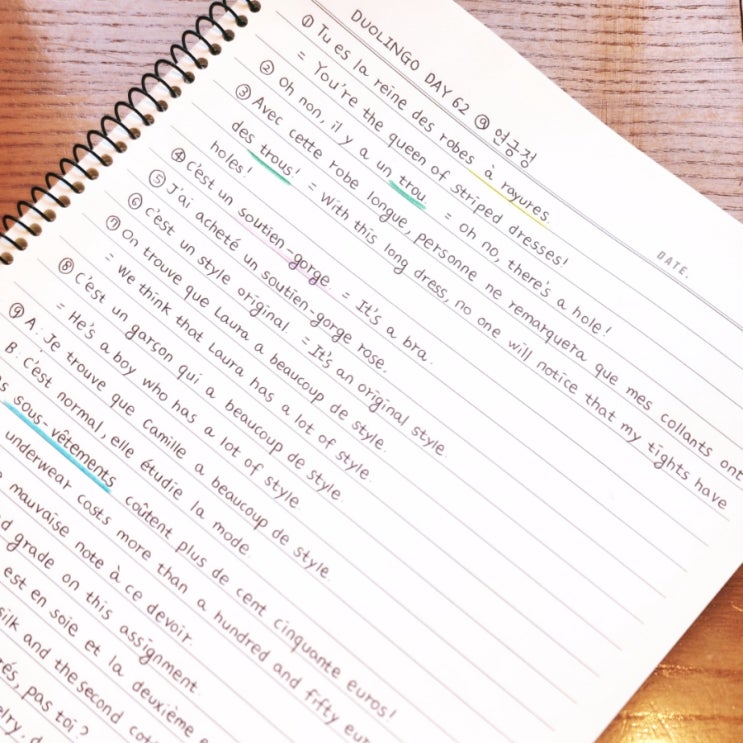 DUOLINGO DAY 62 @ 연공정
DATE.
① Tu es la reine des robes à rayures
= You're the queen of striped dresses!
② Oh non, il y a un trou = oh no, there's a hole!
③ Avec cette robe longue, personne ne remarquera que mes collants ont
des trous! = with this long dress, no one will notice that my tights have
holes!
④ C'est un soutien-gorge = It's a bra.
⑤ J'ai acheté un soutien-gorge rose.
⑥ C'est un style original = It's an original style.
⑦ On trouve que Laura a beaucoup de style.
= We think that Laura has a lot of style.
⑧ C'est un garçon qui a beaucoup de style.
= He's a boy who has a lot of style
⑨ A: Je trouve que Camille a beaucoup de style.
B: C'est normal, elle étudie la mode
sous-vêtements coûtent plus de cent cinquante euros!
underwear costs more than a hundred and fifty
mauvaise note à ce devoir.
grade on this assignment
est en soie et la deuxième
silk and the second
pas toi?